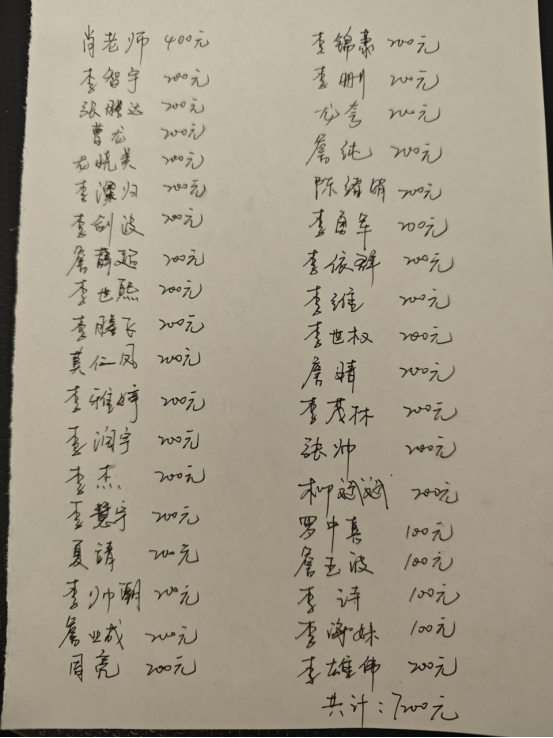 肖老师 400元
李智宇 200元
张鹏达 200元
曹龙 200元
尤晓美 200元
李深归 200元
李剑波 200元
詹薛超 200元
李世熙 200元
李腾飞 200元
莫仁凤 200元
李雅婷 200元
李润宇 200元
李杰 200元
李慧宇 200元
夏靖 200元
李帅潮 200元
詹业成 200元
周亮 200元
李锦豪 200元
李刪 200元
尤夸 200元
詹纯 200元
陈绪娟 200元
李勇军 200元
李依群 200元
李维 200元
李世权 200元
詹晴 200元
李茂林 200元
张帅 200元
柳斌斌 200元
罗中真 100元
詹玉波 100元
李诗 100元
李海妹 100元
李雄伟 200元
共计：7200元